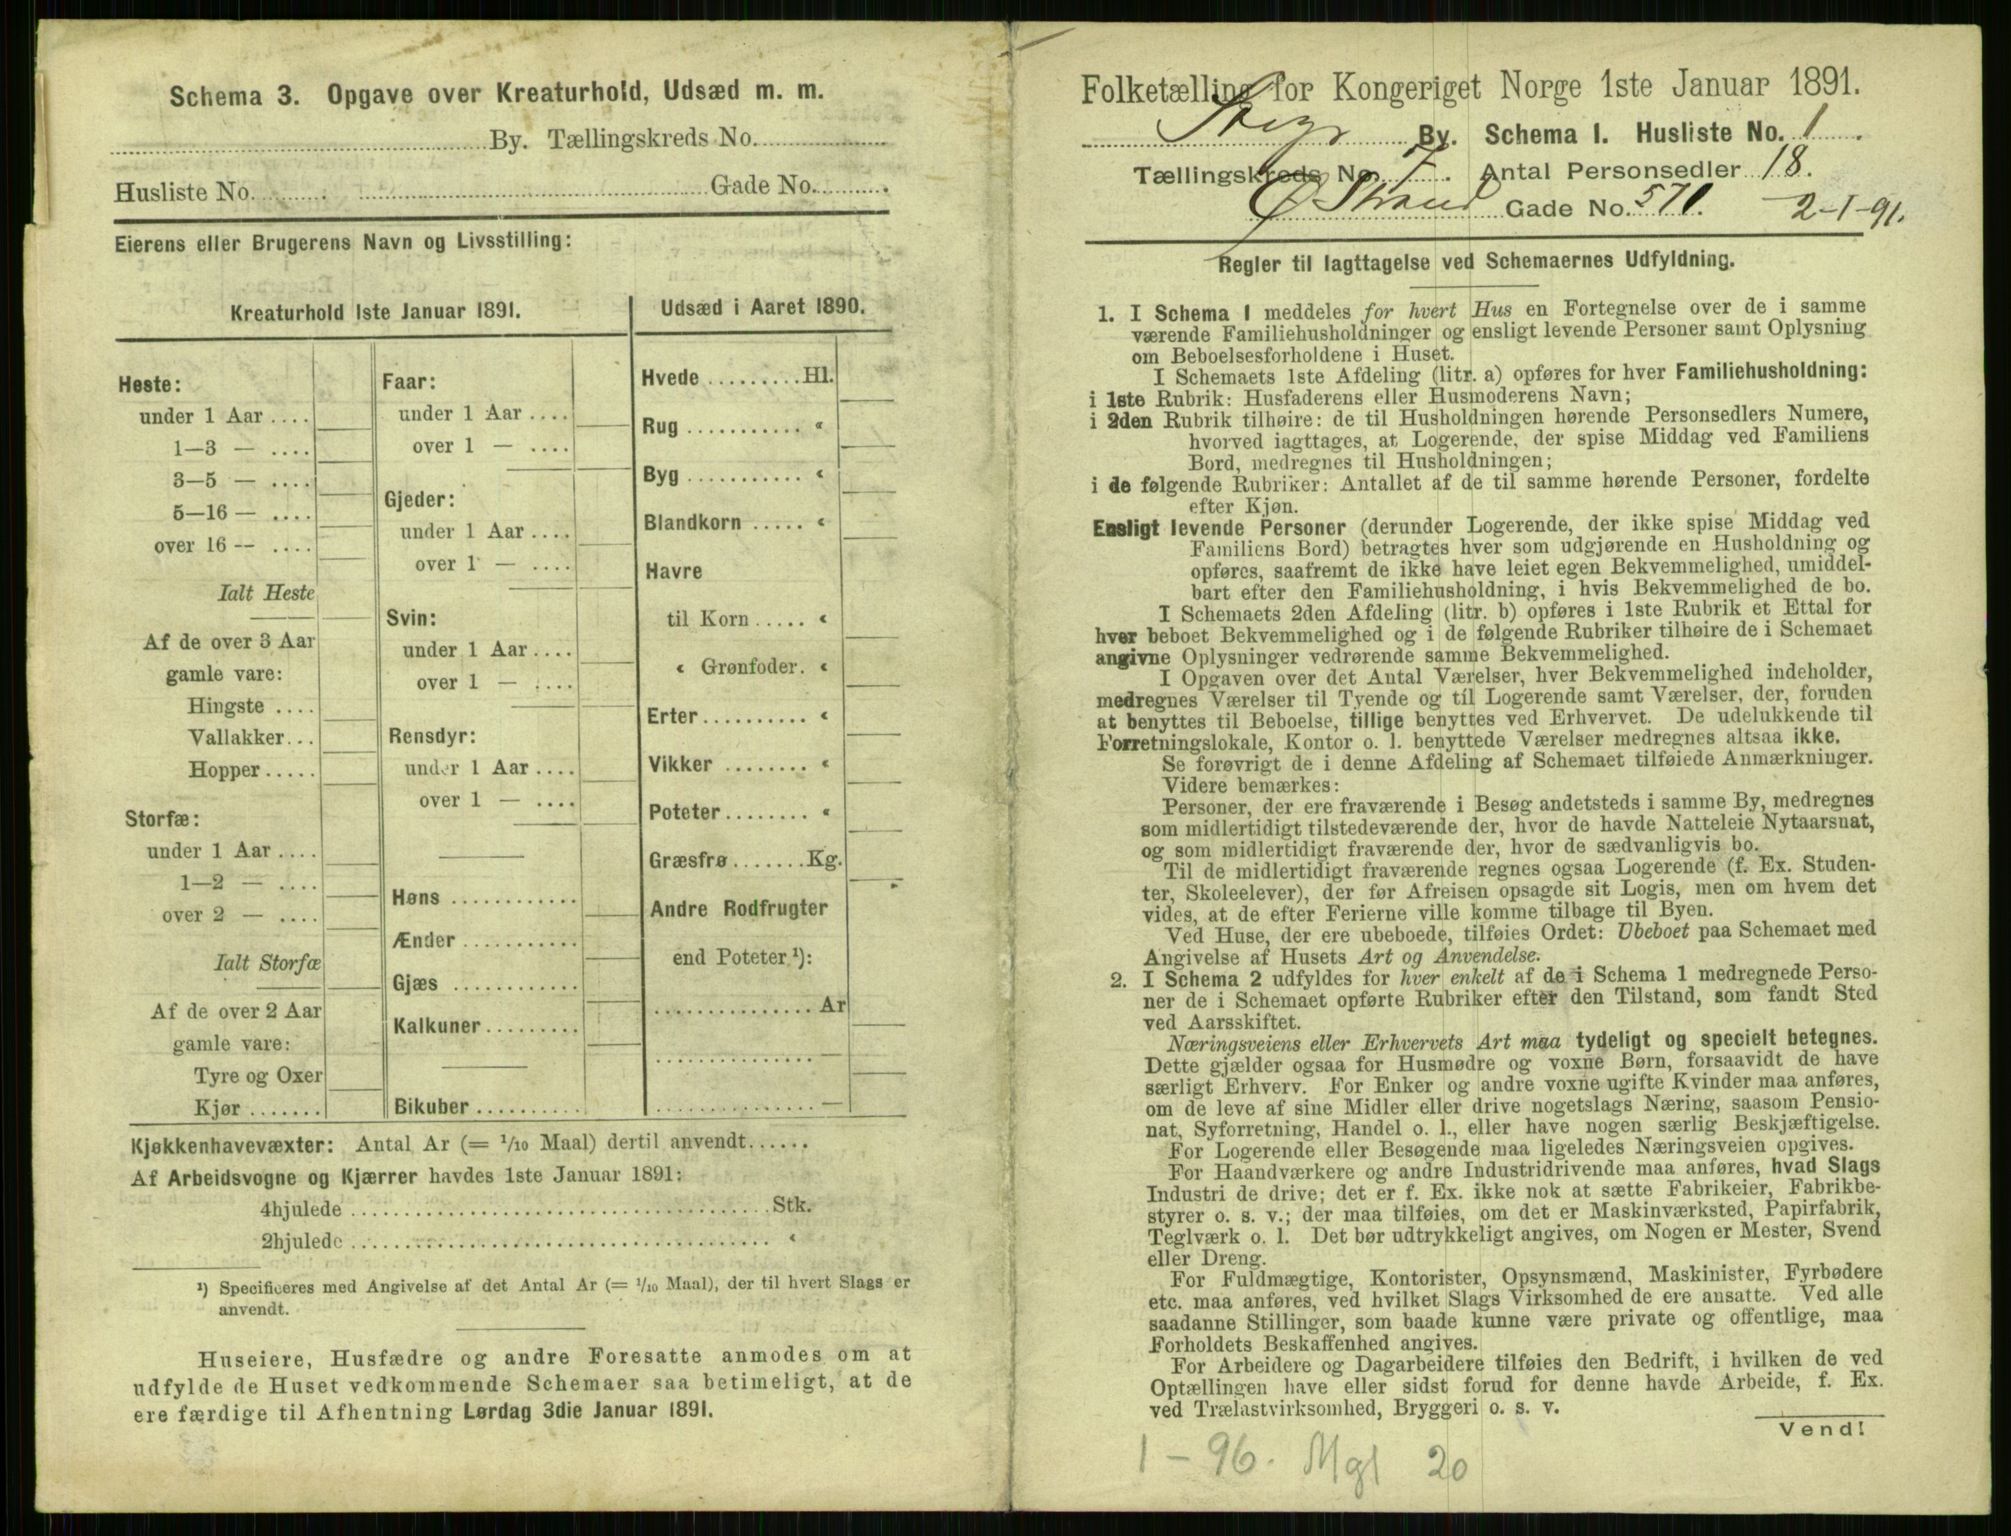 Schema 3. Opgave over Kreaturhold, Udsæd m. m.
By. Tællingskreds No.
Husliste No. Gade No.
Eierens eller Brugerens Navn og Livsstilling:
Kreaturhold 1ste Januar 1891.
Heste:
under 1 Aar
1—3 —
3—5 —
5—16 —
over 16 —
Ialt Heste
Af de over 3 Aar
gamle vare:
Hingste
Vallakker
Hopper
Storfæ:
under 1 Aar
1—2 —
over 2 —
Ialt Storfæ
Af de over 2 Aar
gamle vare:
Tyre og Oxer
Kjør
Faar:
under 1 Aar
over 1 —
Gjeder:
under 1 Aar
over 1 —
Svin:
under 1 Aar
over 1 —
Rensdyr:
under 1 Aar
over 1 —
Høns
Ænder
Gjæs
Kalkuner
Bikuber
Udsæd i Aaret 1890.
Hvede Hl.
Rug «
Byg «
Blandkorn «
Havre
til Korn «
« Grønfoder. «
Erter «
Vikker «
Poteter «
Græsfrø Kg.
Andre Rodfrugter
end Poteter ¹):
Ar
—
—
Kjøkkenhavevæxter: Antal Ar (= 1/10 Maal) dertil anvendt
Af Arbeidsvogne og Kjærrer havdes 1ste Januar 1891:
4hjulede Stk.
2hjulede «
¹) Specificeres med Angivelse af det Antal Ar (= 1/10 Maal), der til hvert Slags er
anvendt.
Huseiere, Husfædre og andre Foresatte anmodes om at
udfylde de Huset vedkommende Schemaer saa betimeligt, at de
ere færdige til Afhentning Lørdag 3die Januar 1891.
Folketælling for Kongeriget Norge 1ste Januar 1891.
By. Schema I. Husliste No. 1.
Tællingskreds No. 7. Antal Personsedler 18.
Ø Strand Gade No. 571. 2-1-91.
Regler til Iagttagelse ved Schemaernes Udfyldning.
1. I Schema 1 meddeles for hvert Hus en Fortegnelse over de i samme
værende Familiehusholdninger og ensligt levende Personer samt Oplysning
om Beboelsesforholdene i Huset.
I Schemaets 1ste Afdeling (litr. a) opføres for hver Familiehusholdning:
i 1ste Rubrik: Husfaderens eller Husmoderens Navn;
i 2den Rubrik tilhøire: de til Husholdningen hørende Personsedlers Numere,
hvorved iagttages, at Logerende, der spise Middag ved Familiens
Bord, medregnes til Husholdningen;
i de følgende Rubriker: Antallet af de til samme hørende Personer, fordelte
efter Kjøn.
Ensligt levende Personer (derunder Logerende, der ikke spise Middag ved
Familiens Bord) betragtes hver som udgjørende en Husholdning og
opføres, saafremt de ikke have leiet egen Bekvemmelighed, umiddel-
bart efter den Familiehusholdning, i hvis Bekvemmelighed de bo.
I Schemaets 2den Afdeling (litr. b) opføres i 1ste Rubrik et Ettal for
hver beboet Bekvemmelighed og i de følgende Rubriker tilhøire de i Schemaet
angivne Oplysninger vedrørende samme Bekvemmelighed.
I Opgaven over det Antal Værelser, hver Bekvemmelighed indeholder,
medregnes Værelser til Tyende og til Logerende samt Værelser, der, foruden
at benyttes til Beboelse, tillige benyttes ved Erhvervet. De udelukkende til
Forretningslokale, Kontor o. l. benyttede Værelser medregnes altsaa ikke.
Se forøvrigt de i denne Afdeling af Schemaet tilføiede Anmærkninger.
Videre bemærkes:
Personer, der ere fraværende i Besøg andetsteds i samme By, medregnes
som midlertidigt tilstedeværende der, hvor de havde Natteleie Nytaarsnat,
og som midlertidigt fraværende der, hvor de sædvanligvis bo.
Til de midlertidigt fraværende regnes ogsaa Logerende (f. Ex. Studen-
ter, Skoleelever), der før Afreisen opsagde sit Logis, men om hvem det
vides, at de efter Ferierne ville komme tilbage til Byen.
Ved Huse, der ere ubeboede, tilføies Ordet: Ubeboet paa Schemaet med
Angivelse af Husets Art og Anvendelse.
2. I Schema 2 udfyldes for hver enkelt af de i Schema 1 medregnede Perso-
ner de i Schemaet opførte Rubriker efter den Tilstand, som fandt Sted
ved Aarsskiftet.
Næringsveiens eller Erhvervets Art maa tydeligt og specielt betegnes.
Dette gjælder ogsaa for Husmødre og voxne Børn, forsaavidt de have
særligt Erhverv. For Enker og andre voxne ugifte Kvinder maa anføres,
om de leve af sine Midler eller drive nogetslags Næring, saasom Pensio-
nat, Syforretning, Handel o. l., eller have nogen særlig Beskjæftigelse.
For Logerende eller Besøgende maa ligeledes Næringsveien opgives.
For Haandværkere og andre Industridrivende maa anføres, hvad Slags
Industri de drive; det er f. Ex. ikke nok at sætte Fabrikeier, Fabrikbe-
styrer o. s. v.; der maa tilføies, om det er Maskinværksted, Papirfabrik,
Teglværk o. l. Det bør udtrykkeligt angives, om Nogen er Mester, Svend
eller Dreng.
For Fuldmægtige, Kontorister, Opsynsmænd, Maskinister, Fyrbødere
etc. maa anføres, ved hvilket Slags Virksomhed de ere ansatte. Ved alle
saadanne Stillinger, som baade kunne være private og offentlige, maa
Forholdets Beskaffenhed angives.
For Arbeidere og Dagarbeidere tilføies den Bedrift, i hvilken de ved
Optællingen have eller sidst forud for denne havde Arbeide, f. Ex.
ved Trælastvirksomhed, Bryggeri o. s. v.
Vend!
1 - 96. Mgl 20